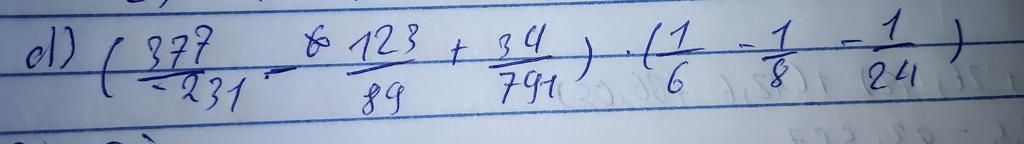 d) ( 377/-231 - 123/89 + 34/791 ) · ( 1/6 - 1/8 - 1/24 )